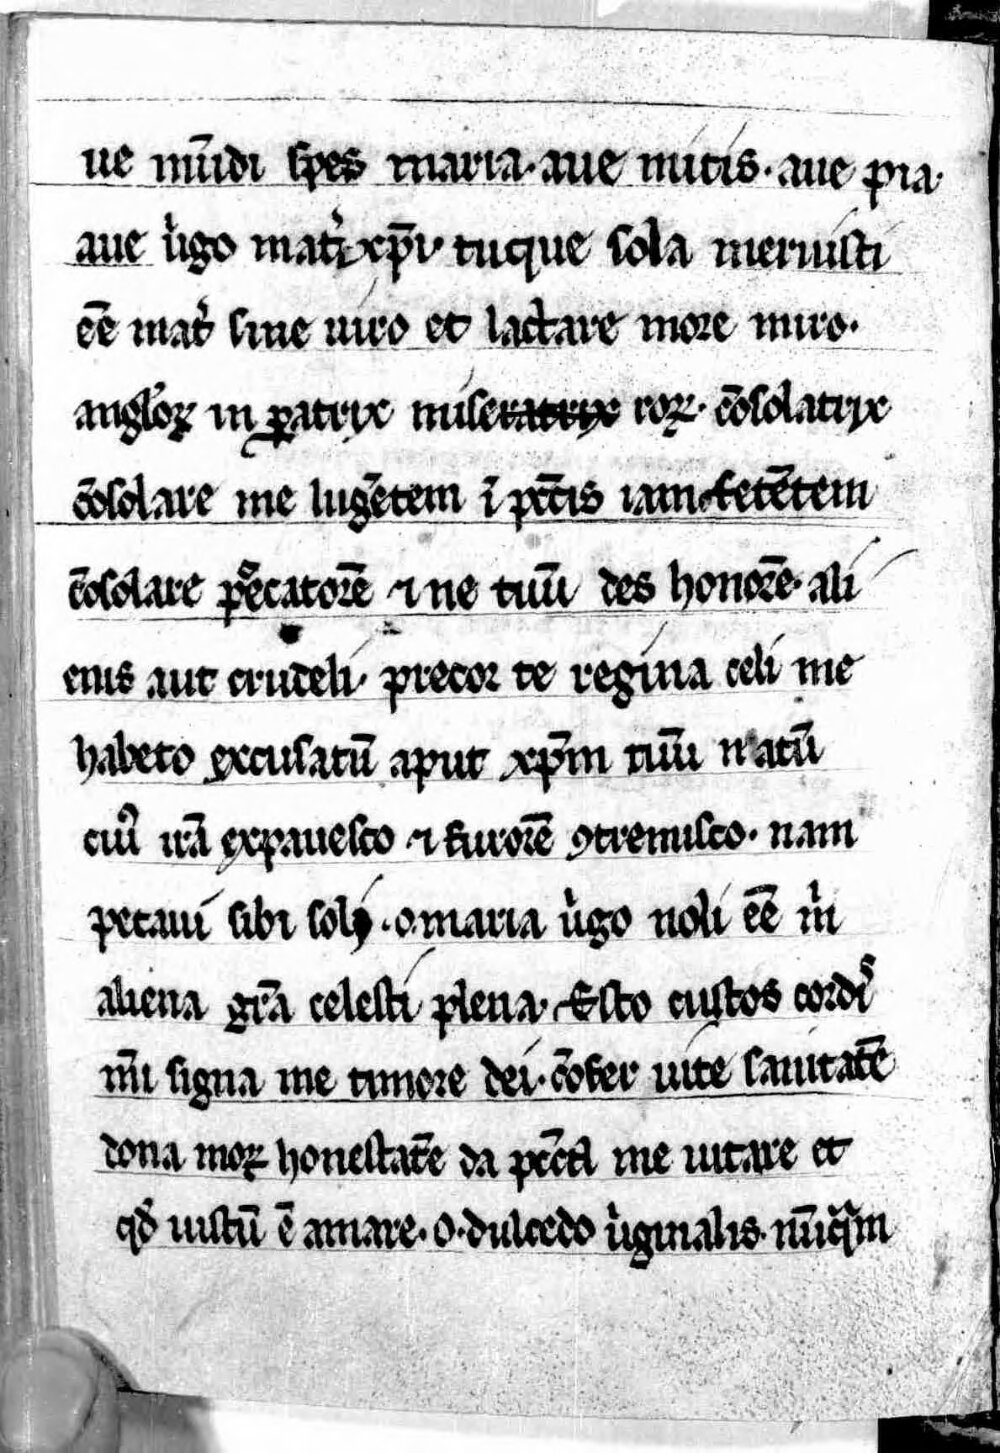 ue mūdi spes maria · aue mitis · aue pia ·
aue uͥgo matͥ xp̄i · tuque sola meruisti
ēē mat̛ sine uiro et lactare more miro ·
angl̛oꝝ inꝑatrix misecatrix roꝝ · cōsolatrix
cōsolare me lugētem ī pc̄tis iam fetētem
cōsolare peccatorē ⁊ ne tuū des honorē · ali
enis aut crudeli · precor te regina celi me
habeto excusatū aput xp̄m tuū natū
cuiꝰ irā expauesco ⁊ furorē ꝯtremisco · nam
pecaui sibi soli · o · maria uͥgo noli ēē mͥ
aliena gr̄a celesti plena · Esto custos cordis
m̄i signa me timore dei · cōfer uite sanitatē
dona moꝝ honestatē da pc̄cā me uitare et
qd̛ iustū ē amare · o · dulcedo uͥginalis · nūqͣm